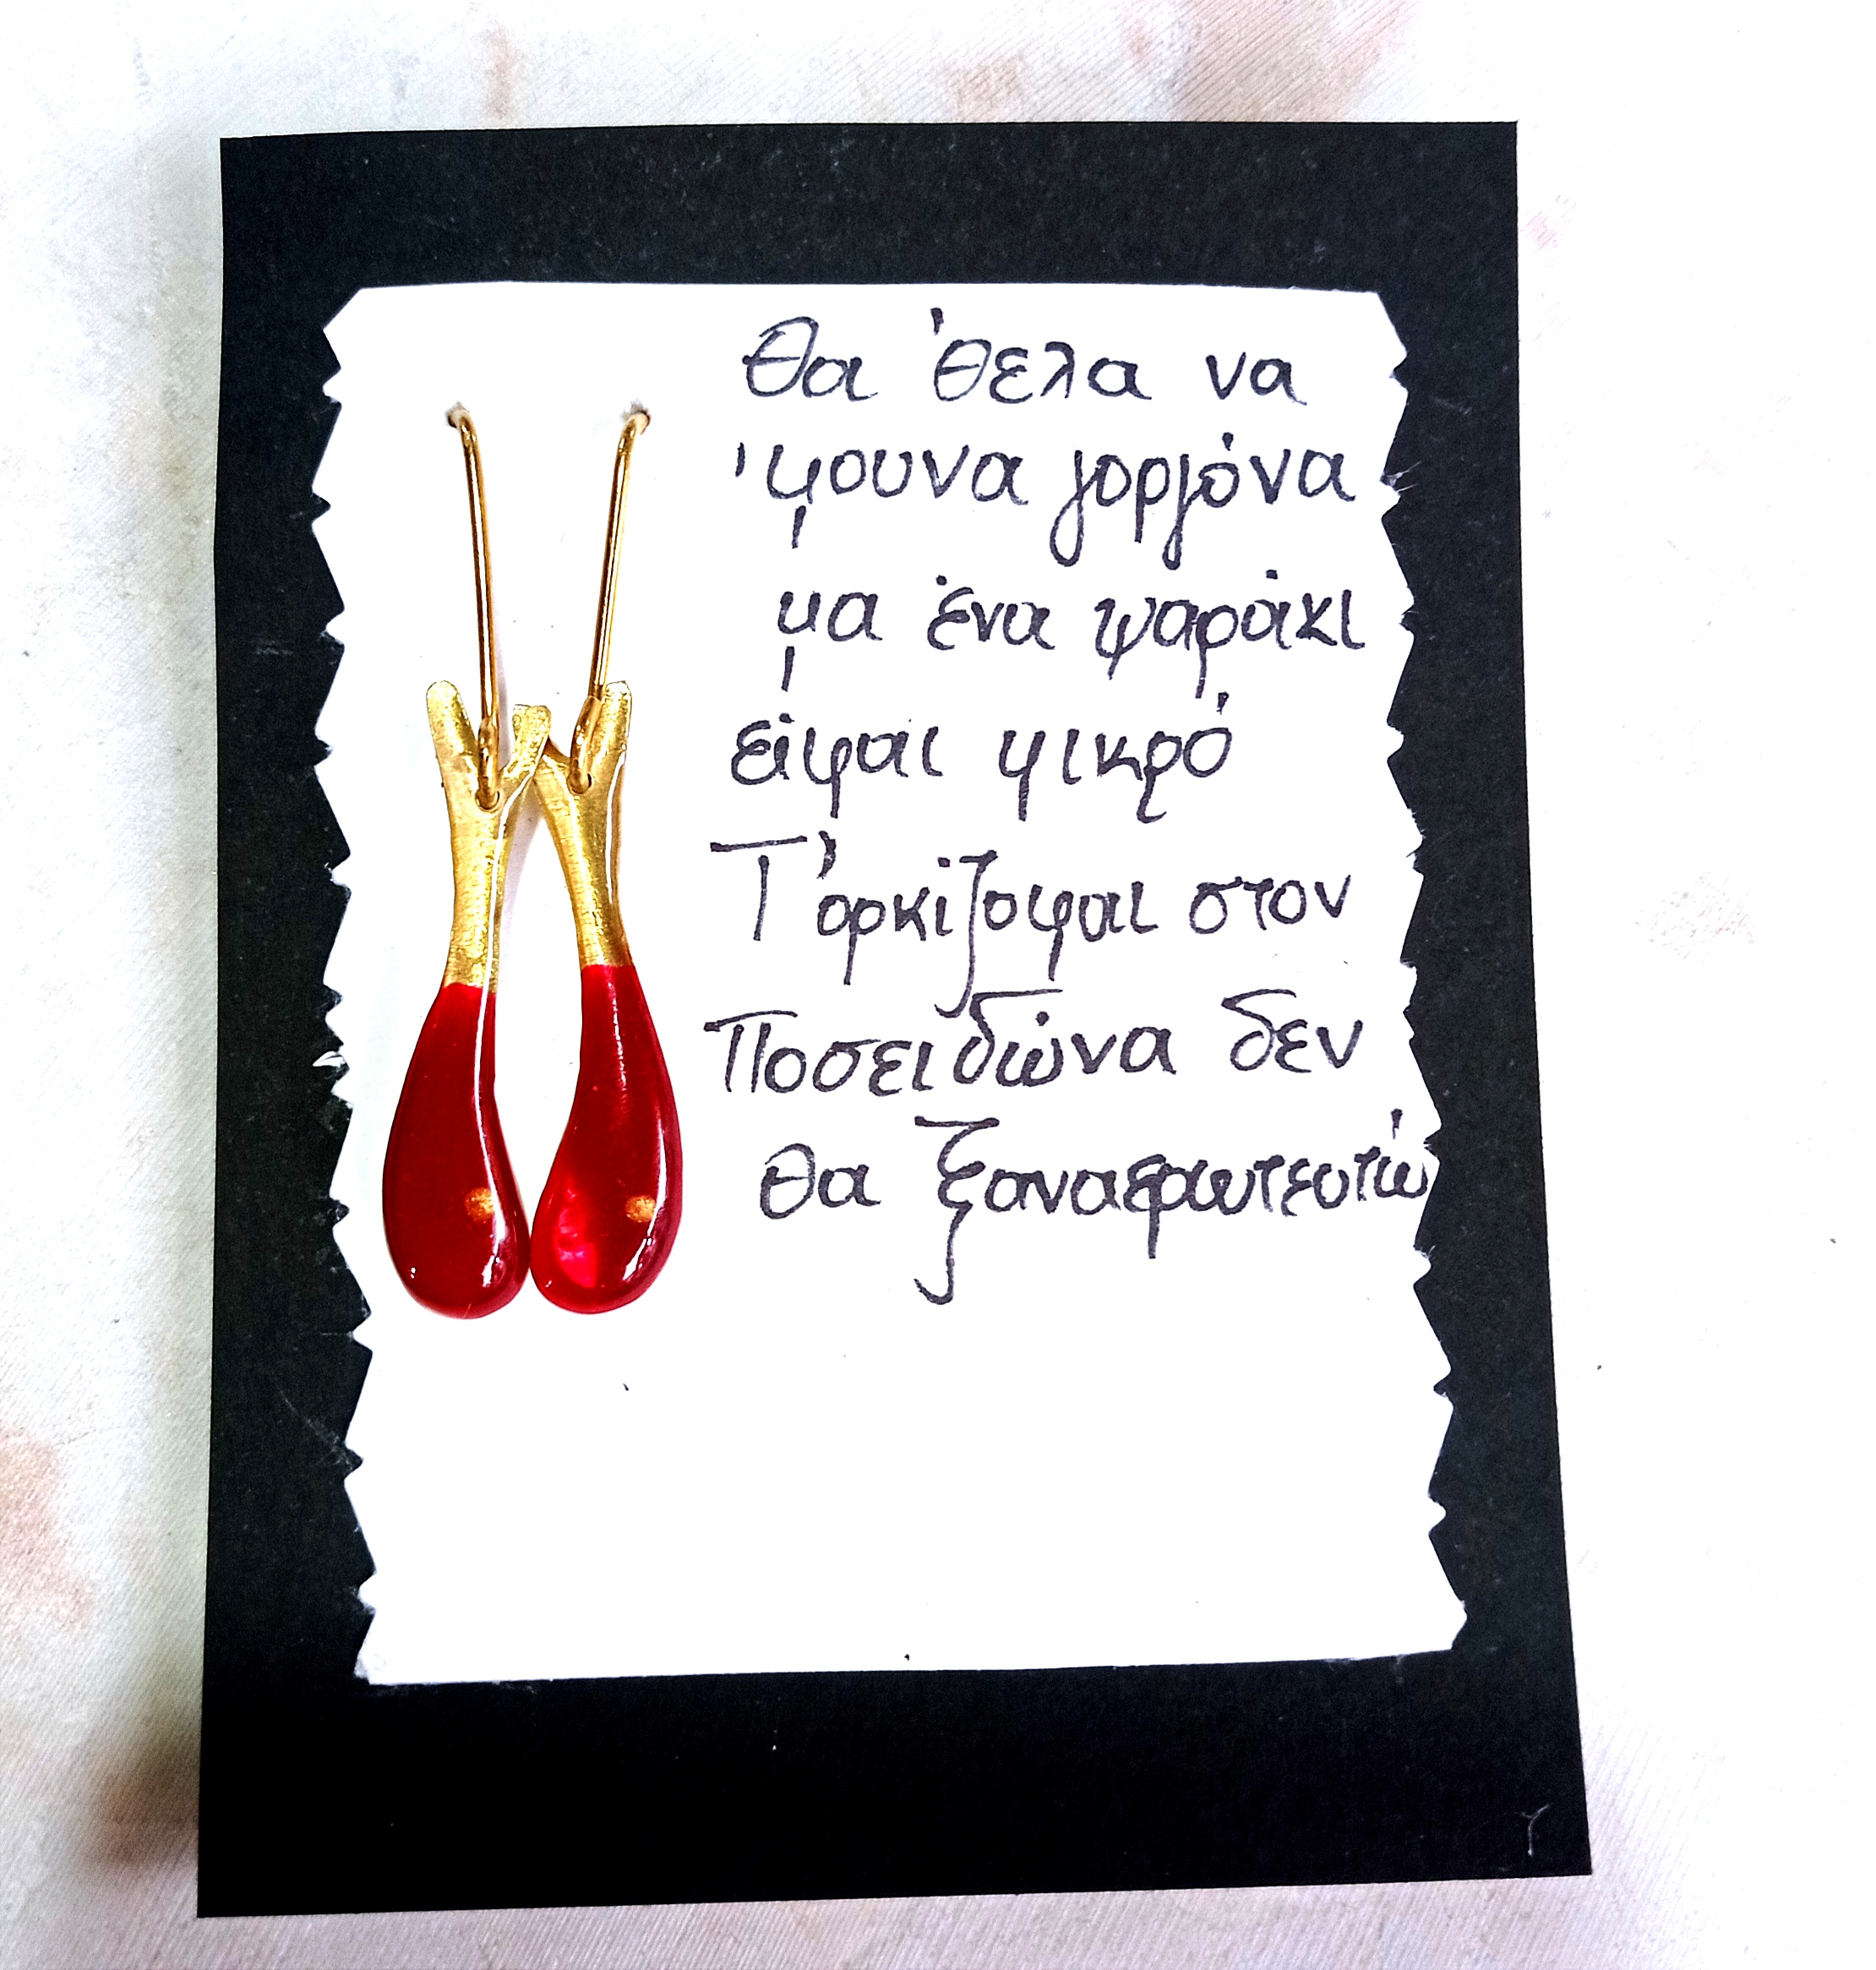 Θα 'θελα να
'μουνα γοργόνα
μα ένα ψαράκι
είμαι μικρό
Τ' όρκίζομαι στον
Ποσειδώνα δεν
θα ξαναερωτευτώ